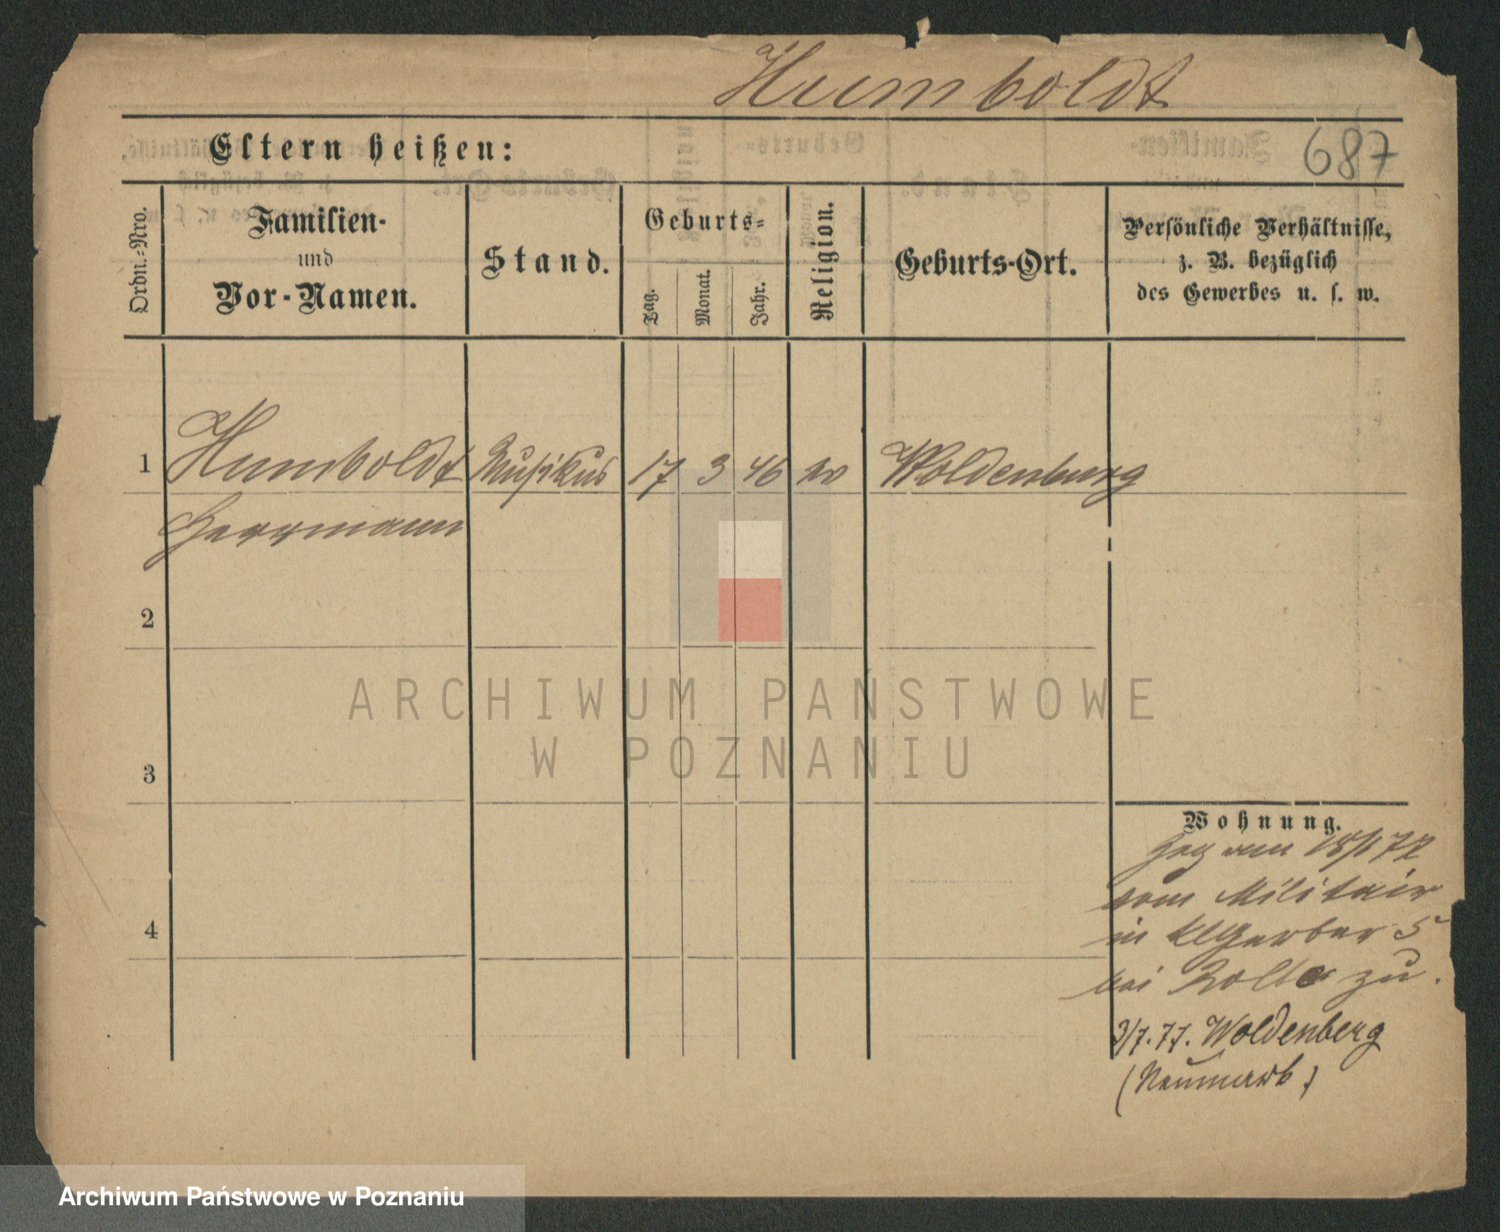 Humboldt
687
Eltern heißen:
Ordn.-Nro.
Familien-
und
Vor-Namen.
Stand.
Geburts-
Tag.
Monat.
Jahr.
Religion.
Geburts-Ort.
Persönliche Verhältnisse,
z. B. bezüglich
des Gewerbes u. s. w.
1 Humboldt Musikus 17 3 46 ev Woldenburg
Herrmann
2
3
4
Wohnung.
vom Militair
in kl Gerber 5
bei zu.
Woldenberg
(Neumark)
ARCHIWUM PAŃSTWOWE
W POZNANIU
Archiwum Państwowe w Poznaniu